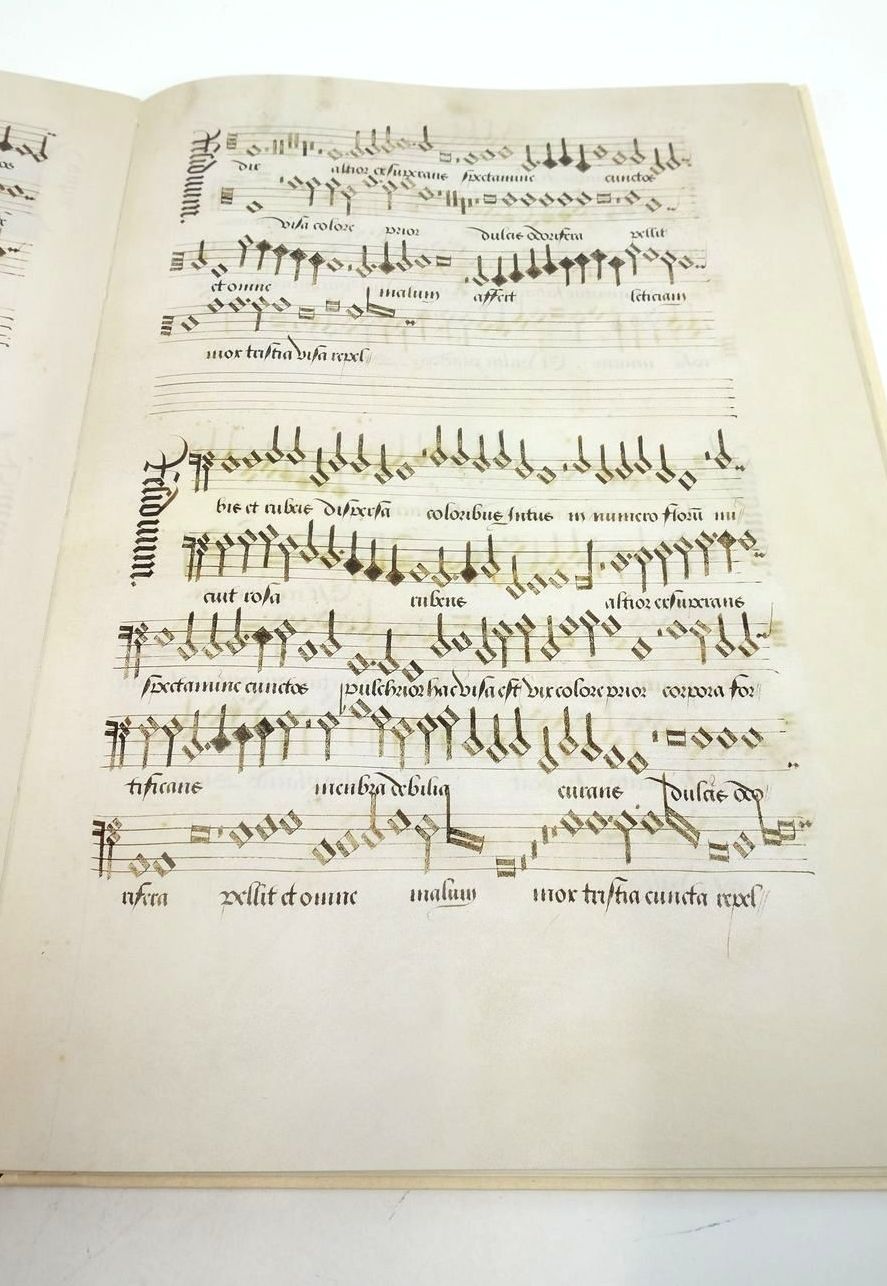 Residuum.
die altior exsuperans spectamine cunctos
visa colore prior dulcis odorifera pellit
et omne malum affert leticiam
mox tristia visa repel
Residuum.
bis et rubeis dispersa coloribus Intus in numero florū mi
cuit rosa rubens altior exsuperans
spectamine cunctos pulchrior hac visa est vix colore prior corpora for
tificans menbra debilia curans dulcis odo
rifera pellit et omne malum mox tristia cuncta repel